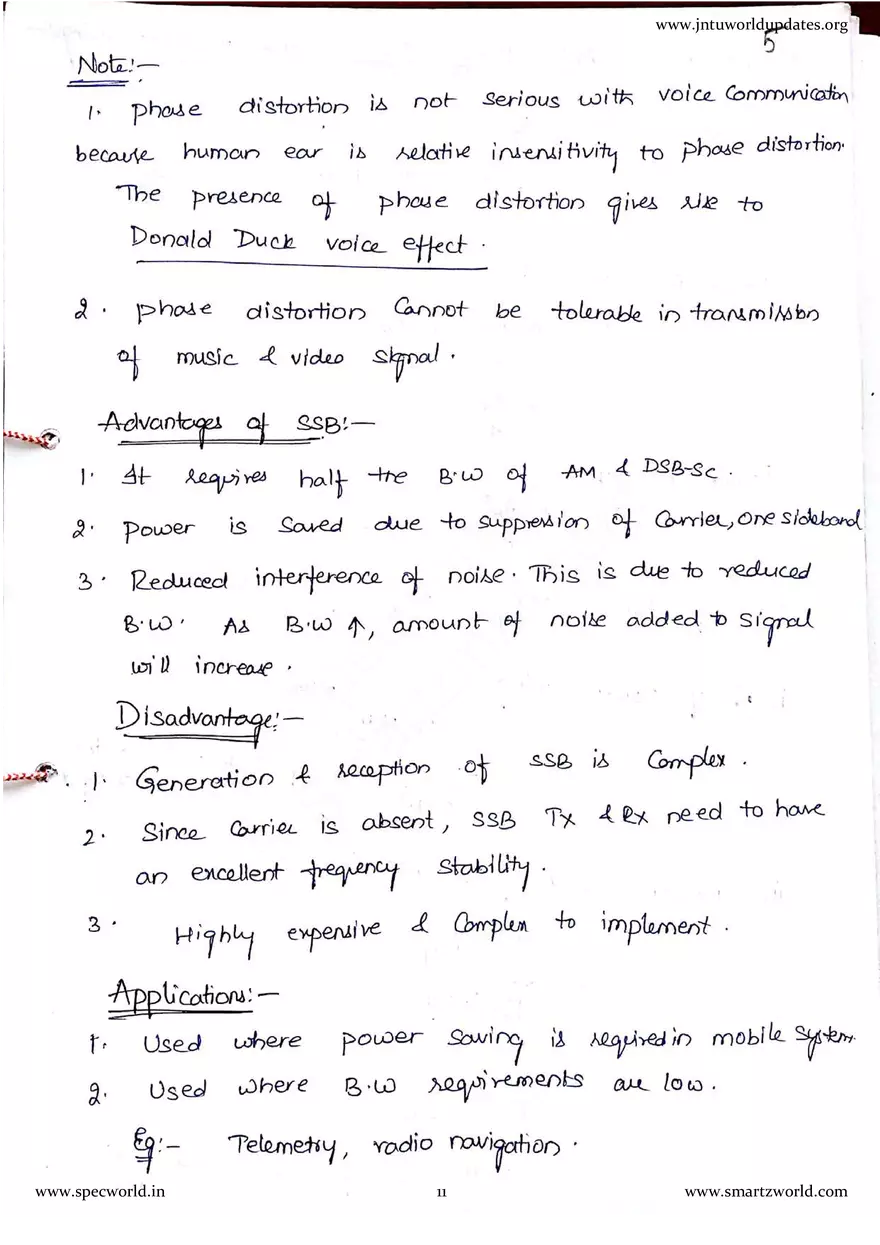 www.jntuworldupdates.org
5
Note:-
1. phase distortion is not serious with voice Communication
because human ear is relative insensitivity to phase distortion.
The presence of phase distortion gives rise to
Donald Duck voice effect.
2. phase distortion Cannot be tolerable in transmission
of music & video signal.
Advantages of SSB:-
1. It requires half the B.W of AM & DSB-SC.
2. Power is Saved due to suppression of Carrier, one sideband
3. Reduced interference of noise. This is due to reduced
B.W. As B.W ↑, amount of noise added to signal
will increase.
Disadvantage:-
1. Generation & reception of SSB is Complex.
2. Since Carrier is absent, SSB Tx & Rx need to have
an excellent frequency stability.
3. Highly expensive & Complex to implement.
Applications:-
1. Used where power saving is required in mobile system.
2. Used where B.W requirements are low.
Eg:- Telemetry, radio navigation.
www.specworld.in 11 www.smartzworld.com